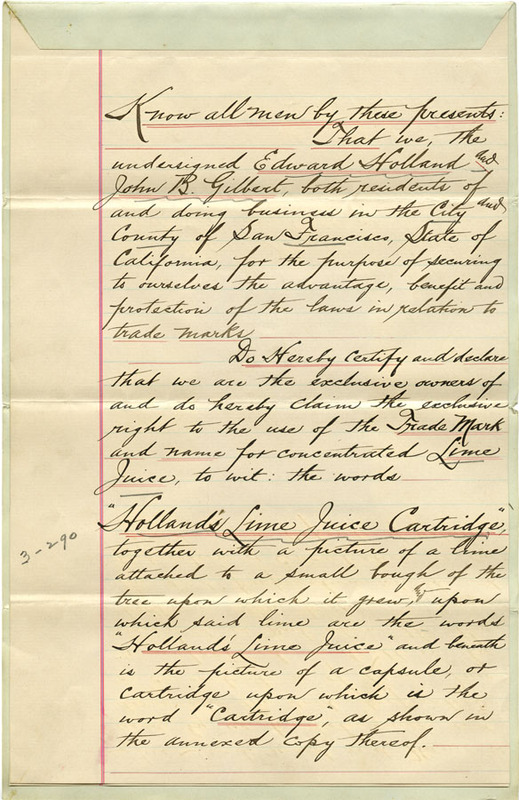 Know all men by these presents:
That we, the
undersigned Edward Holland and
John B. Gilbert, both residents of
and doing business in the City and
County of San Francisco, State of
California, for the purpose of securing
to ourselves the advantage, benefit and
protection of the laws in relation to
trade marks
Do Hereby Certify and declare
that we are the exclusive owners of
and do hereby claim the exclusive
right to the use of the Trade Mark
and name for concentrated Lime
Juice, to wit: the words
"Holland's Lime Juice Cartridge",
together with a picture of a lime
attached to a small bough of the
tree upon which it grew, and upon
which said lime are the words
"Holland's Lime Juice" and beneath
is the picture of a capsule, or
cartridge upon which is the
word "Cartridge", as shown in
the annexed copy thereof.
3-290